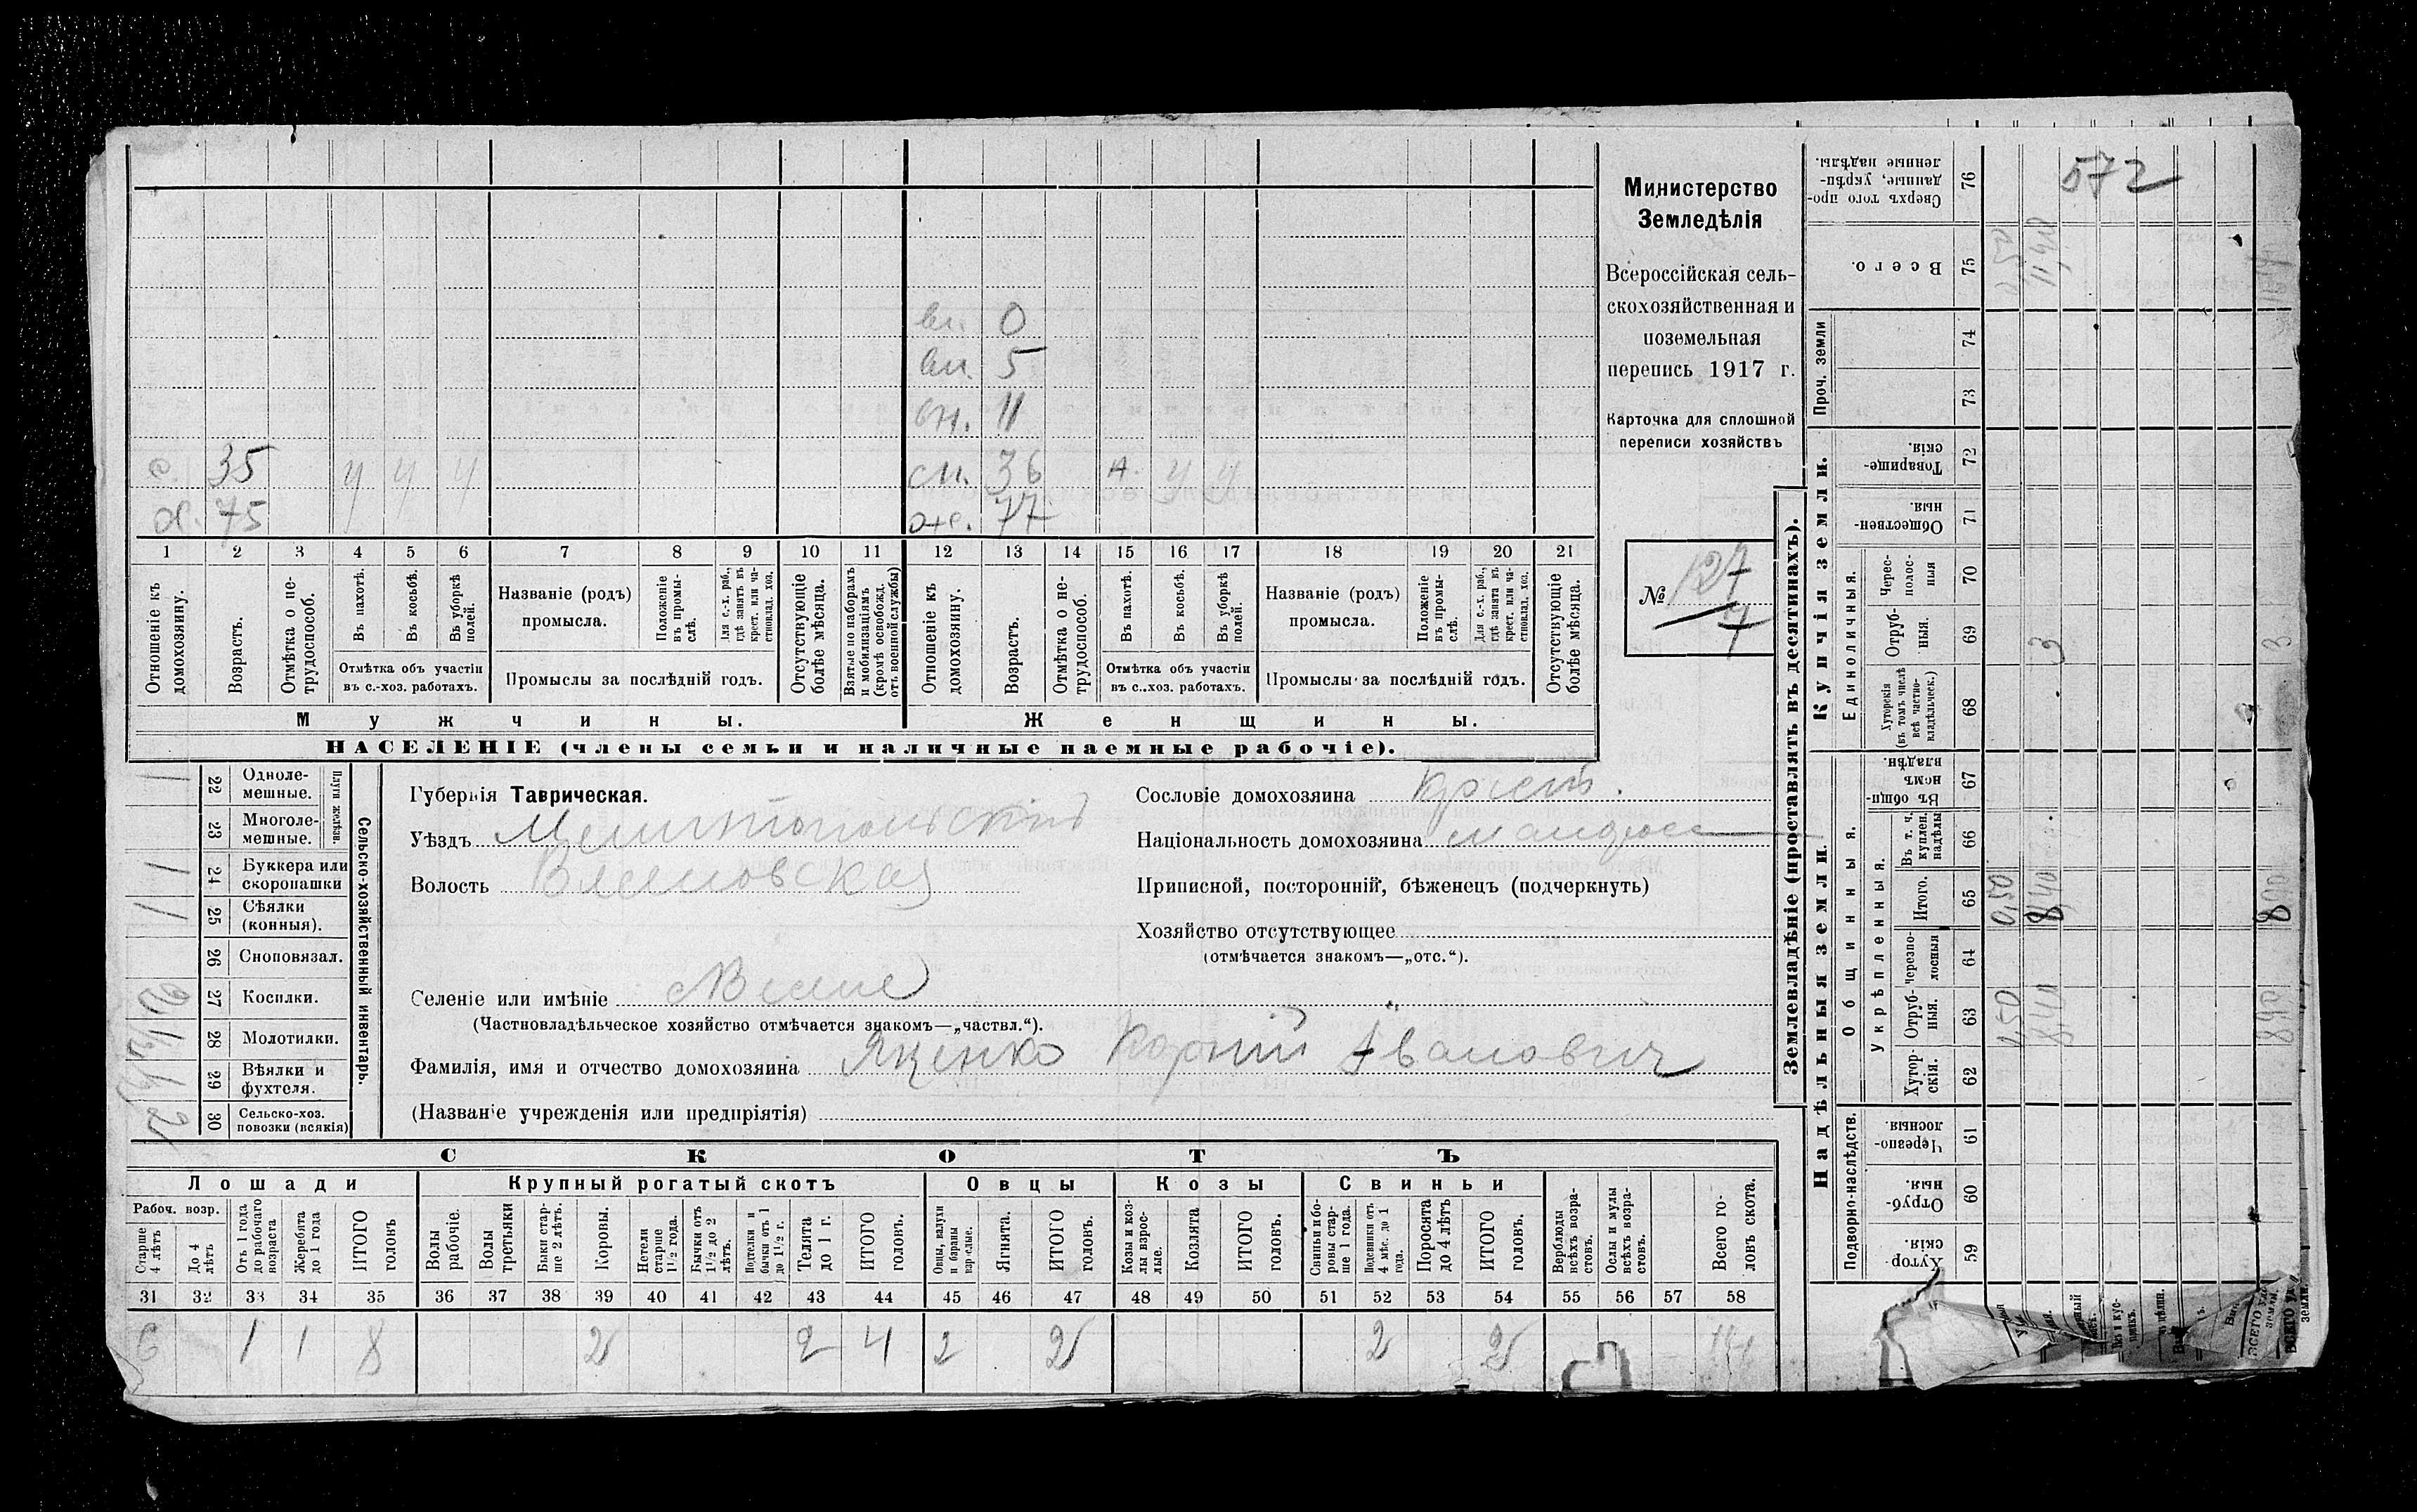 572
Министерство
Земледѣлія
Всероссійская сель-
скохозяйственная и
поземельная
перепись 1917 г.
Карточка для сплошной
переписи хозяйствъ
№ 127
7
вн. 0
вн. 5
вн. 11
с. 35 ч ч ч
сн. 36 ч ч
75
77
1 2 3 4 5 6 7 8 9 10 11 12 13 14 15 16 17 18 19 20 21
Отношеніе къ домохозяину.
Возрастъ.
Отмѣтка о не-трудоспособ.
Въ пахотѣ.
Въ косьбѣ.
Въ уборкѣ полей.
Отмѣтка объ участіи
въ с.-хоз. работахъ.
Названіе (родъ)
промысла.
Положеніе въ промы-слѣ.
Для с.-х. раб., гдѣ занятъ въ крест. или ча-стновлад. хоз.
Промыслы за послѣдній годъ.
Отсутствующіе болѣе мѣсяца.
Взятые по наборамъ и мобилизаціямъ (кромѣ освобожд. отъ военной службы)
Отношеніе къ домохозяину.
Возрастъ.
Отмѣтка о не-трудоспособ.
Въ пахотѣ.
Въ косьбѣ.
Въ уборкѣ полей.
Отмѣтка объ участіи
въ с.-хоз. работахъ.
Названіе (родъ)
промысла.
Положеніе въ промы-слѣ.
Для с.-х. раб., гдѣ занята въ крест. или ча-стновлад. хоз.
Промыслы за послѣдній годъ.
Отсутствующіе болѣе мѣсяца.
Мужчины. Женщины.
НАСЕЛЕНІЕ (члены семьи и наличные наемные рабочіе).
Сельско-хозяйственный инвентарь.
Плуги желѣзн.
1 22 Одноле-мешные.
23 Многоле-мешные.
1 24 Буккера или скоропашки
1 25 Сѣялки (конныя).
26 Сноповязал.
27 Косилки.
28 Молотилки.
29 Вѣялки и фухтеля.
2 30 Сельско-хоз. повозки (всякія)
Губернія Таврическая.
Уѣздъ Мелитопольскій
Волость
Селеніе или имѣніе
(Частновладѣльческое хозяйство отмѣчается знакомъ—„частвл.“).
Фамилія, имя и отчество домохозяина Яценко Корній Иванович
(Названіе учрежденія или предпріятія)
Сословіе домохозяина
Національность домохозяина малорос
Приписной, посторонній, бѣженецъ (подчеркнуть)
Хозяйство отсутствующее
(отмѣчается знакомъ—„отс.“).
СКОТЪ
Лошади Крупный рогатый скотъ Овцы Козы Свиньи
Рабоч. возр.
Старше 4 лѣтъ
До 4 лѣтъ
Отъ 1 года до рабочаго возраста
Жеребята до 1 года
ИТОГО головъ
Волы рабочіе.
Волы третьяки
Быки стар-ше 2 лѣтъ.
Коровы.
Нетели старше 1½ года.
Бычки отъ 1½ до 2 лѣтъ.
Подтелки и бычки отъ 1 до 1½ г.
Телята до 1 г.
ИТОГО головъ.
Овцы, валухи и бараны взрослые.
Ягнята.
ИТОГО головъ.
Козы и коз-лы взрос-лые.
Козлята
ИТОГО головъ.
Свиньи и бо-ровы стар-ше 1 года.
Подсвинки отъ 4 мѣс. до 1 года.
Поросята до 4 лѣтъ
ИТОГО головъ.
Верблюды всѣхъ возра-стовъ.
Ослы и мулы всѣхъ возра-стовъ.
Всего го-ловъ скота.
31 32 33 34 35 36 37 38 39 40 41 42 43 44 45 46 47 48 49 50 51 52 53 54 55 56 57 58
6 1 1 8 2 2 4 2 2 2 2
Землевладѣніе (проставлять въ десятинахъ).
Надѣльныя земли.
Купчія земли.
Проч. земли
Подворно-наслѣдств.
Общинныя.
Укрѣпленныя.
Единоличныя.
76 Сверхъ того про-данные, укрѣп-ленные надѣлы.
75 Всего. 11,40
74
73
72 Товарище-скія.
71 Обществен-ныя.
70 Черес-полос-ныя
69 Отруб-ныя. 3 3
68 Хуторскія (въ томъ числѣ всѣ частно-владѣльческ.)
67 Въ общин-номъ владѣн.
66 Въ т. ч. куплен. надѣлы
65 Итого. 0,50 8,40
64 Черезпо-лосныя
63 Отруб-ныя. 0,50 8,40 8,90
62 Хутор-скія.
61 Черезпо-лосныя
60 Отруб-ныя.
59 Хутор-скія.